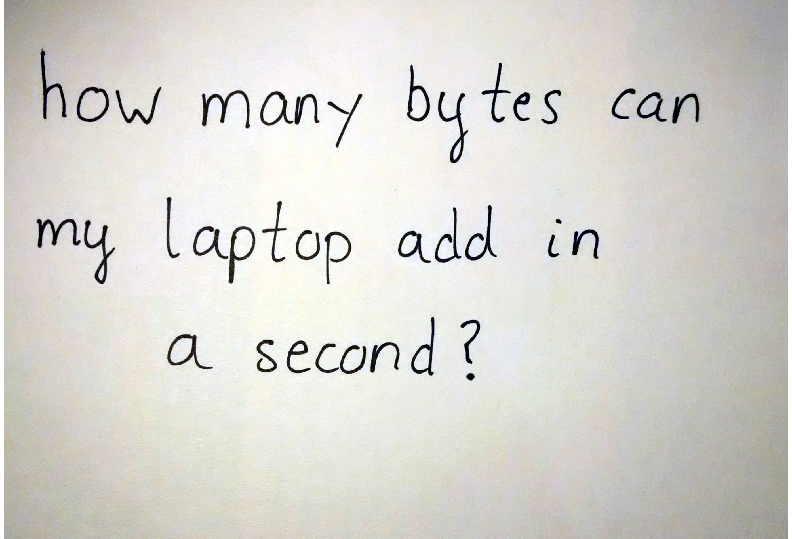 how many bytes can
my laptop add in
a second?